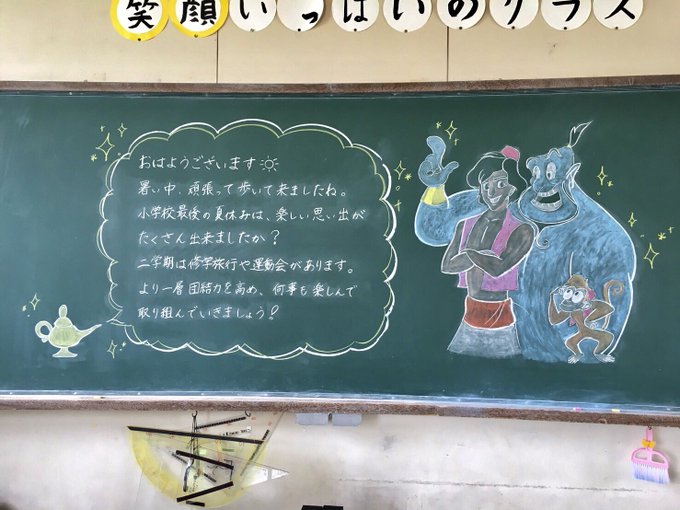 笑顔いっぱいのクラス
おはようございます
暑い中、頑張って歩いて来ましたね。
小学校最後の夏休みは、楽しい思い出が
たくさん出来ましたか?
二学期は修学旅行や運動会があります。
より一層団結力を高め、何事も楽しんで
取り組んでいきましょう!